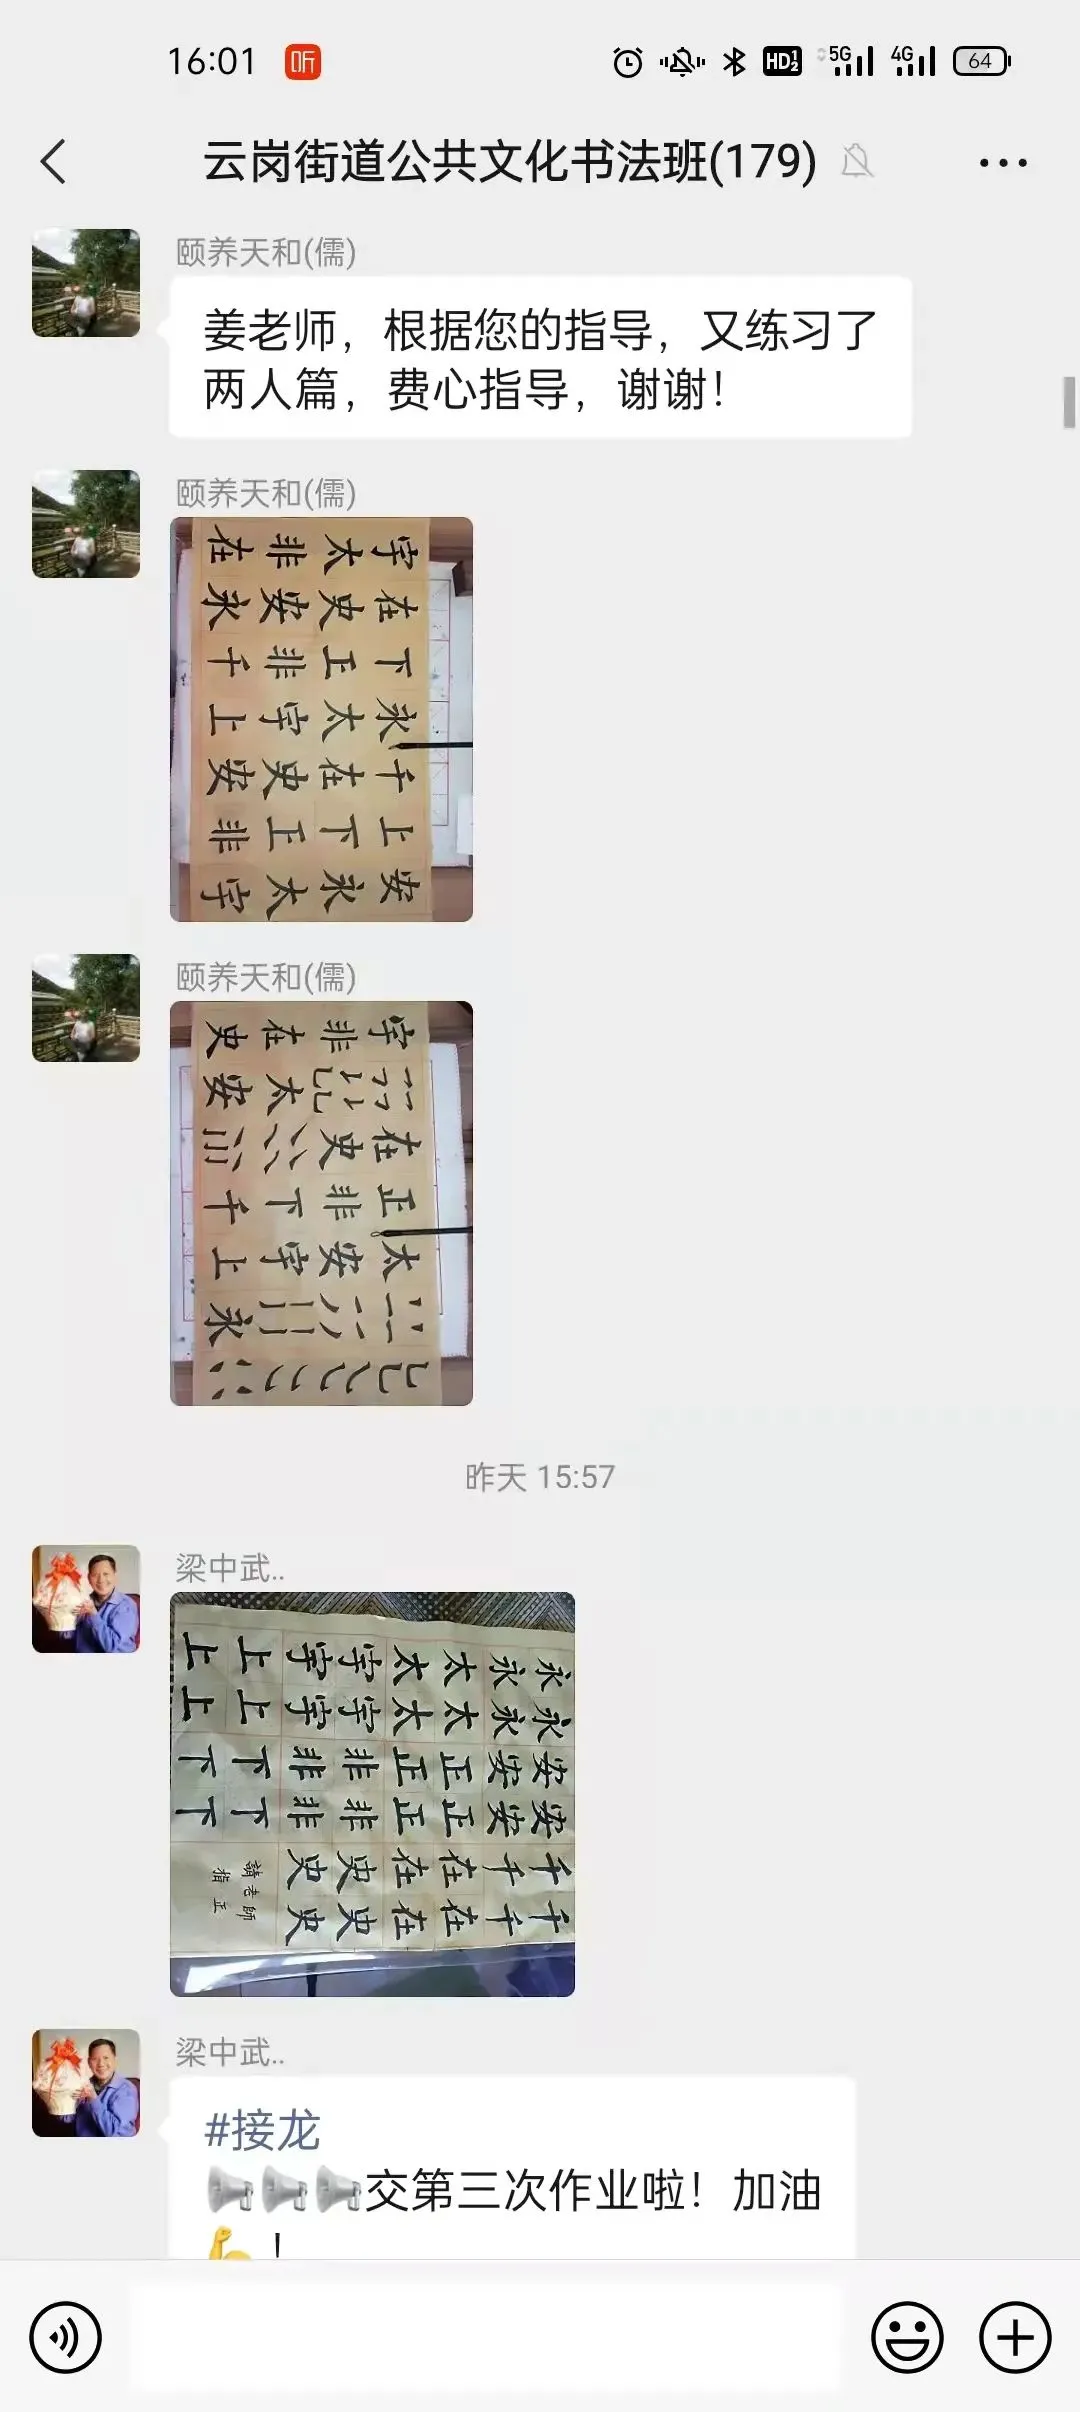 16:01
听
HD 1 2
5G
4G
64
云岗街道公共文化书法班(179)
颐养天和(儒)
姜老师，根据您的指导，又练习了
两人篇，费心指导，谢谢！
颐养天和(儒)
在非太字
永安史在
千非正下
上字太永
安史在千
非正下上
字太永安
颐养天和(儒)
史在非字
安太
史在
千下非正
上字安太
永
昨天 15:57
梁中武..
上上字字太太永永
上上字字太太永永
下下非非正正安安
下下非非正正安安
史史在在千千
史史在在千千
請老師
指正
梁中武..
#接龙
交第三次作业啦！加油
！